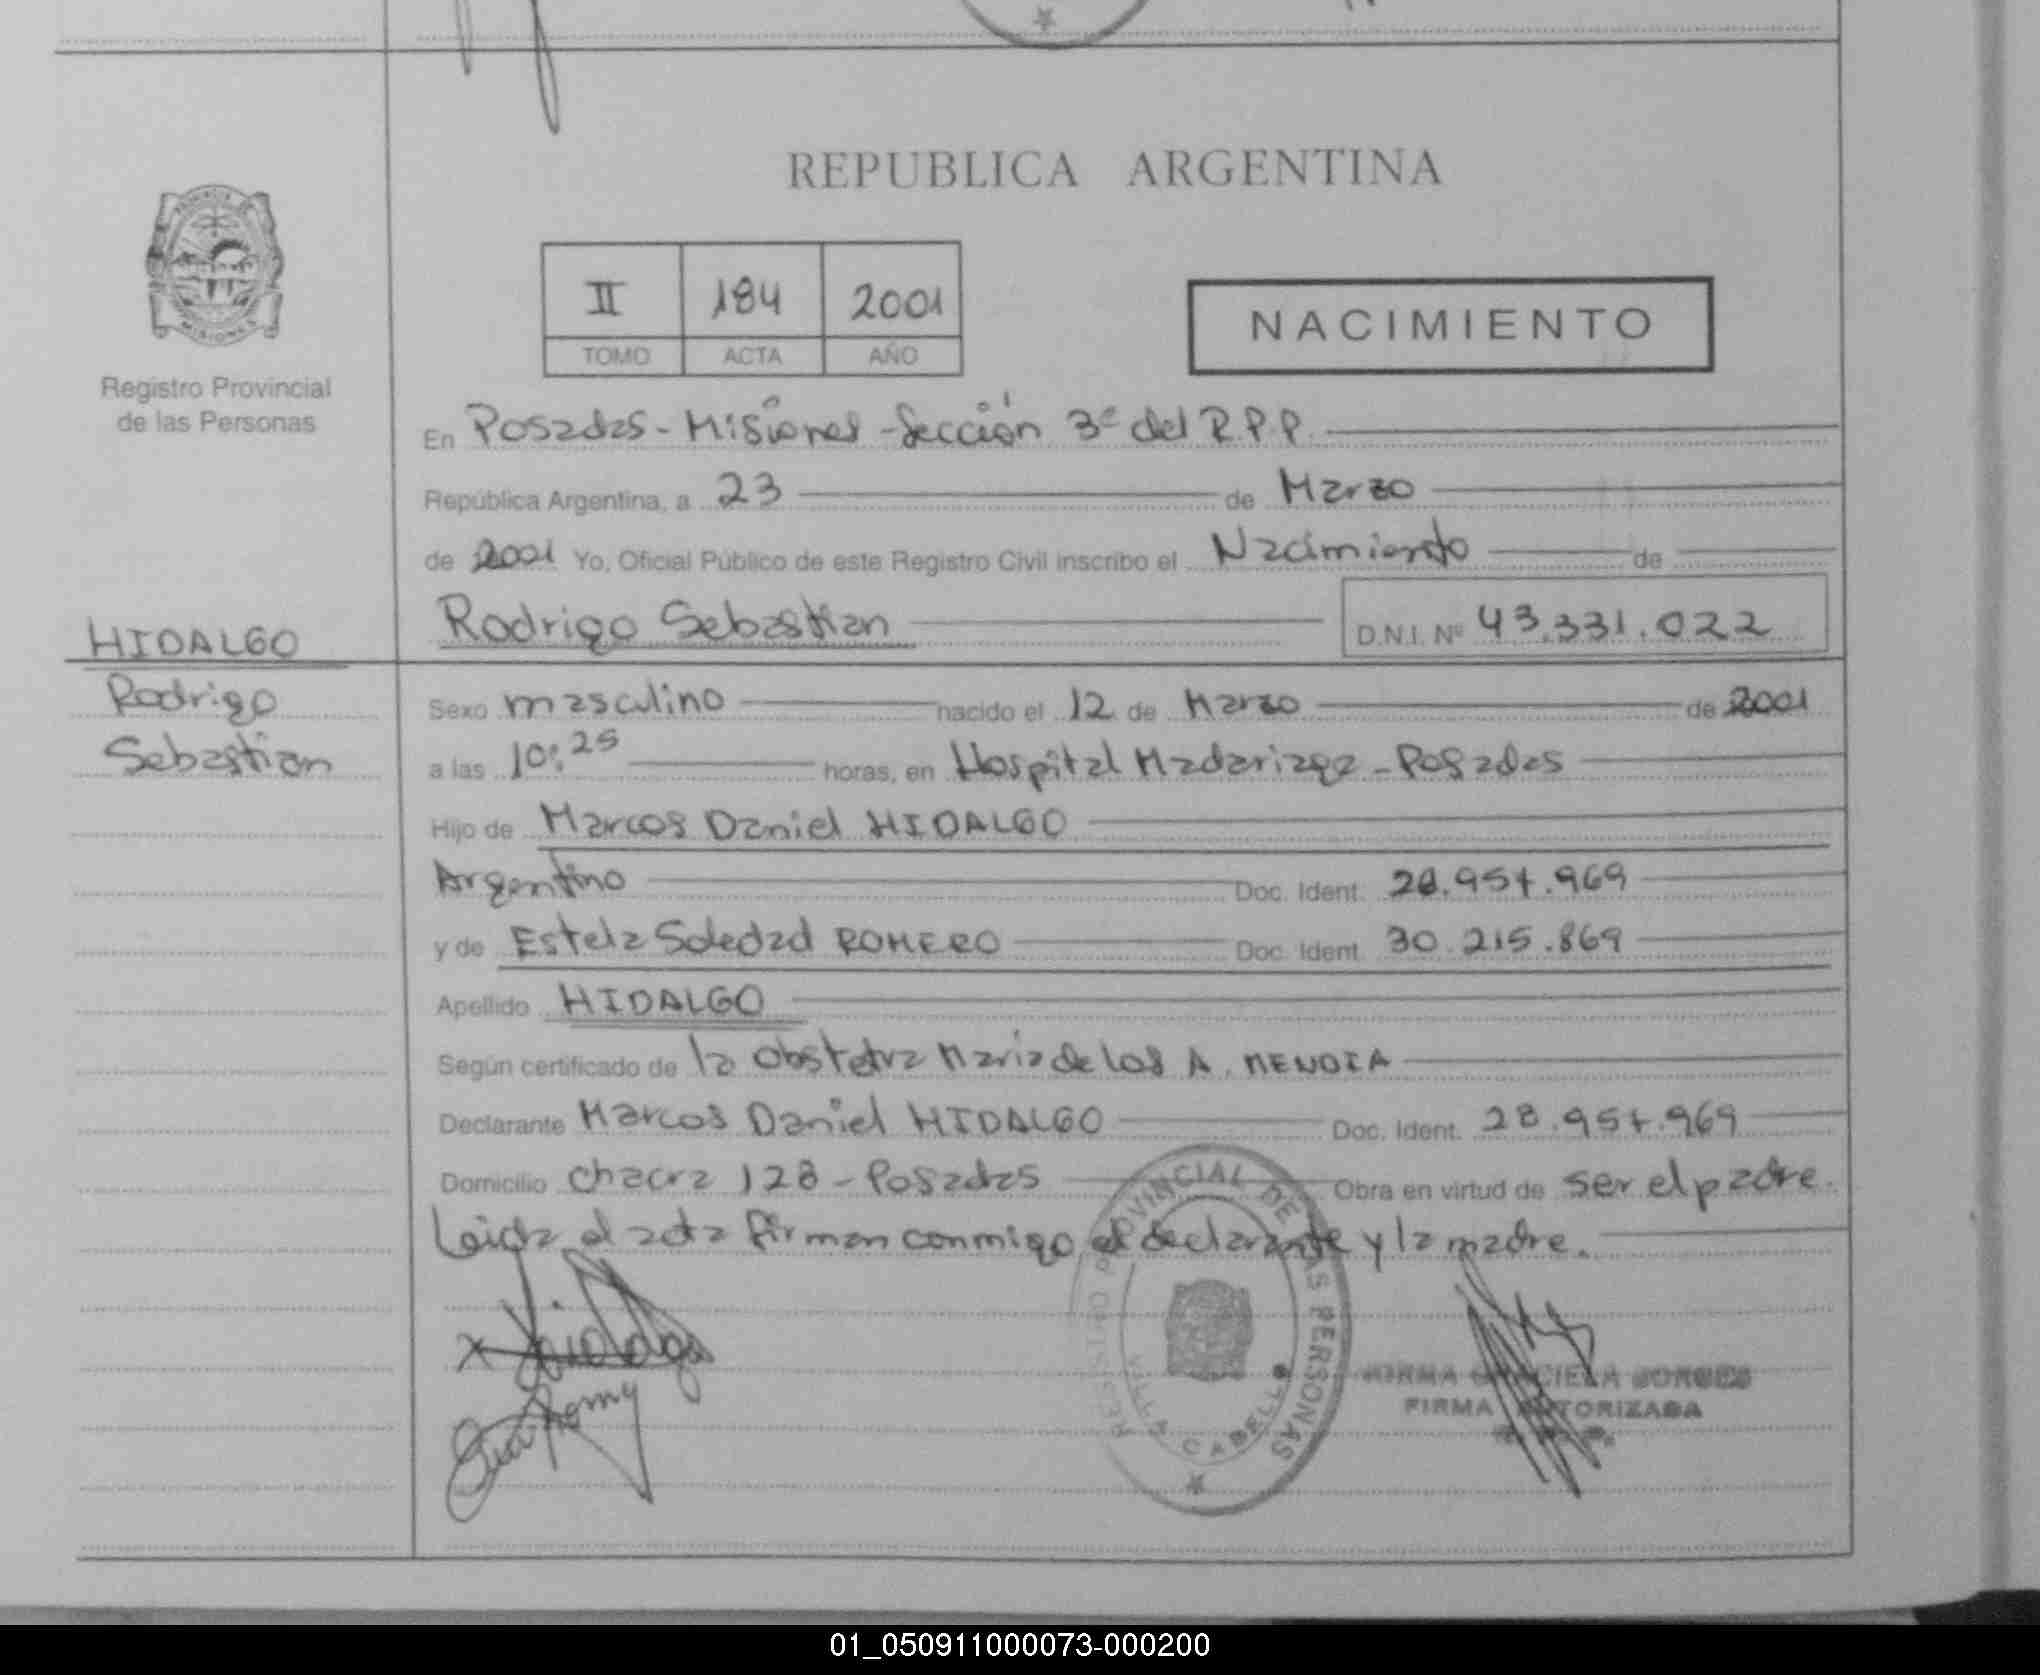 REPUBLICA ARGENTINA
II 184 2001
TOMO ACTA AÑO
NACIMIENTO
MISIONES
Registro Provincial
de las Personas
En Posadas - Misiones - Sección 3ª del R.P.P.
República Argentina, a 23 de Marzo
de 2001 Yo, Oficial Público de este Registro Civil inscribo el Nacimiento de
Rodrigo Sebastian D.N.I. Nº 43.331.022
HIDALGO
Rodrigo
Sebastian
Sexo masculino nacido el 12 de Marzo de 2001
a las 10:25 horas, en Hospital Madariaga - Posadas
Hijo de Marcos Daniel HIDALGO
Argentino Doc. Ident. 28.957.969
y de Estela Soledad ROMERO Doc. Ident. 30.215.869
Apellido HIDALGO
Según certificado de la Obstetra Maria de los A.
Declarante Marcos Daniel HIDALGO Doc. Ident. 28.957.969
Domicilio Chacra 128 - Posadas Obra en virtud de ser el padre.
Leida el acta firman conmigo el declarante y la madre.
REGISTRO PROVINCIAL DE LAS PERSONAS
VILLA CABELLO
GRACIELA
FIRMA AUTORIZADA
01_050911000073-000200